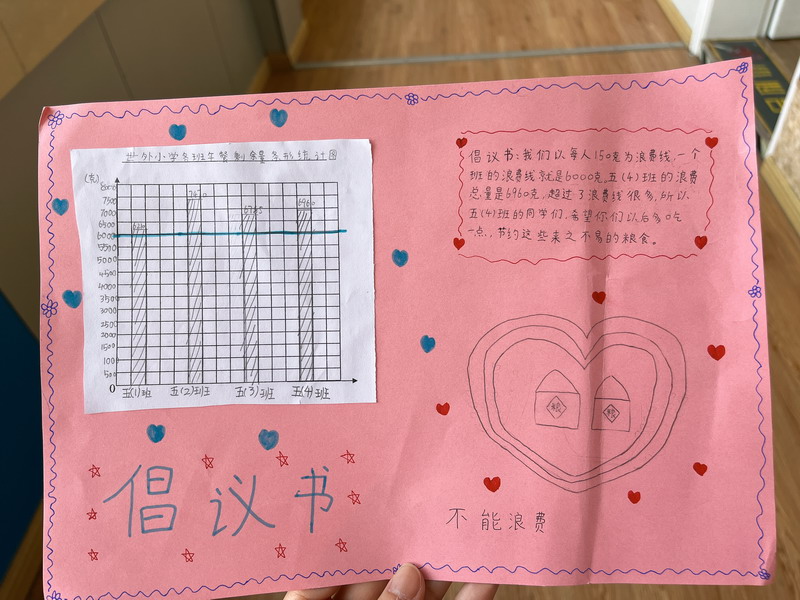 世外小学各班午餐剩余量条形统计图
(克)
8000
7500
7000
6500
6000
5500
5000
4500
4000
3500
3000
2500
2000
1500
1000
500
0
6960
五(1)班 五(2)班 五(3)班 五(4)班
倡议书:我们以每人150克为浪费线,一个
班的浪费线就是6000克,五(4)班的浪费
总量是6960克,超过了浪费线很多,所以
五(4)班的同学们,希望你们以后多吃
一点,节约这些来之不易的粮食。
粮 粮
倡议书
不能浪费